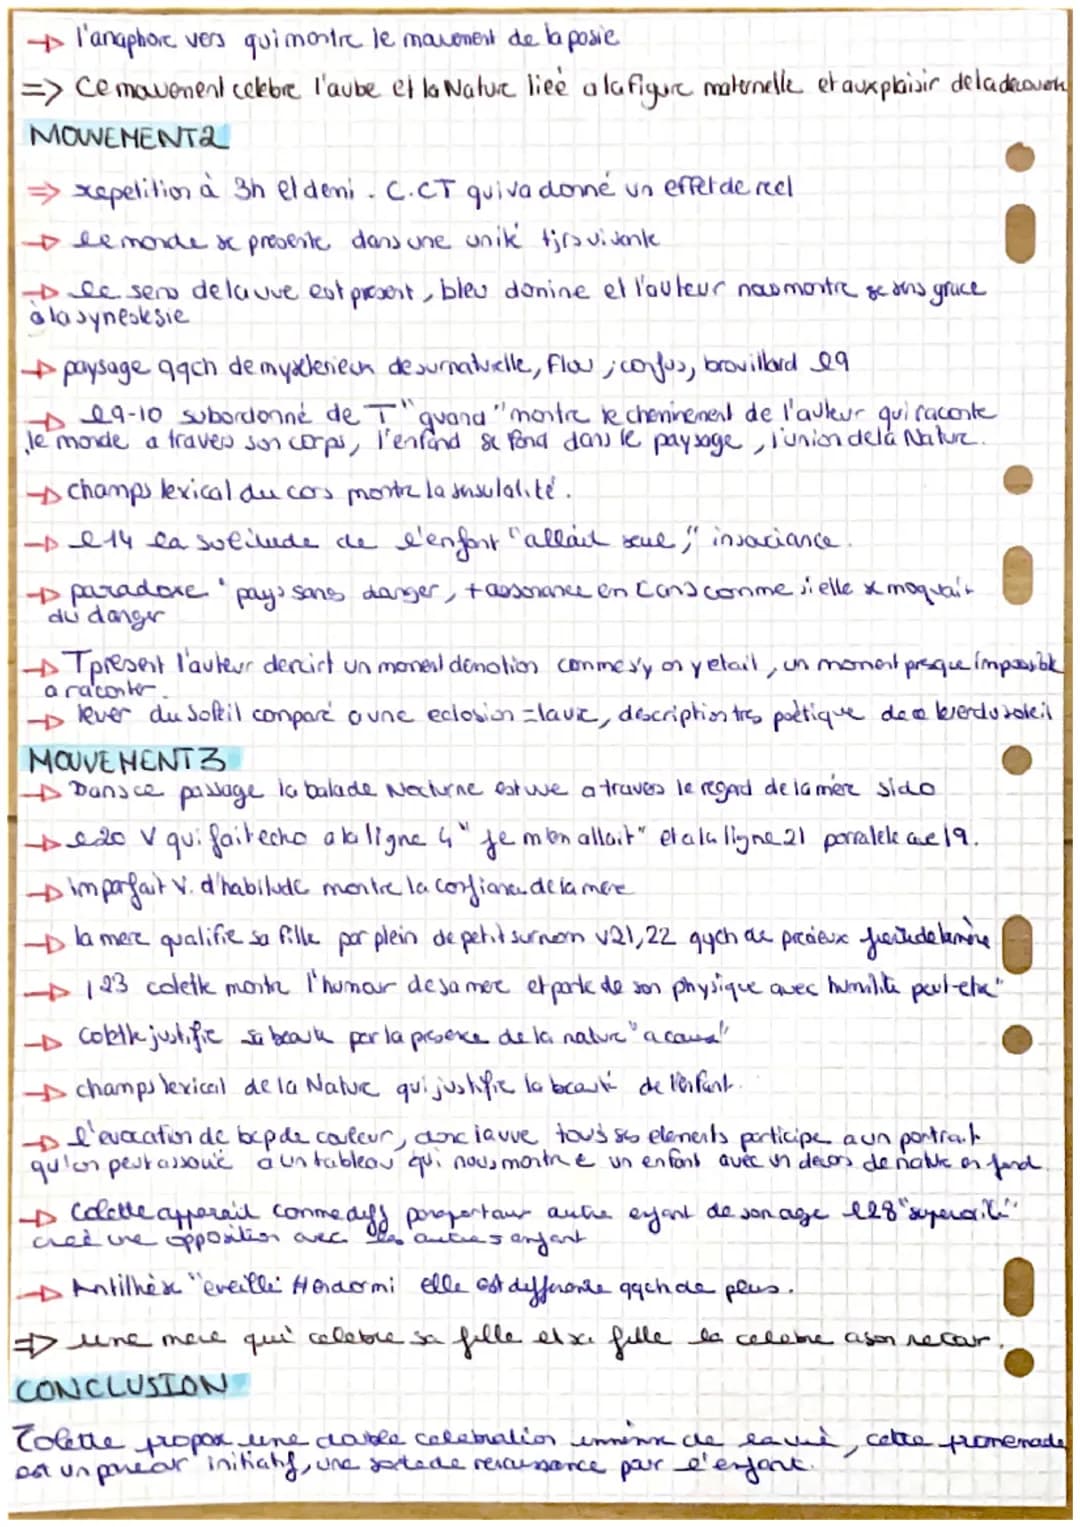 → l'anaphore vers qui montre le mouvement de la posie
=> Ce mouvement celebre l'aube et la Nature lieé a la figure maternelle et aux plaisir de la decouverte
MOUVEMENT 2
=> repetition à 3h et demi . C.CT qui va donné un effet de reel
→ le monde se presente dans une unité tjrs vivante
→ le sens de la vue est present, bleu domine et l'auteur nous montre se sens grace
à la synestesie
→ paysage qqch de mysterieux de surnaturelle, flou ; confus, brouillard l9
→ l9-10 subordonné de T "quand" montre le cheminement de l'auteur qui raconte
le monde a travers son corps, l'enfand se fond dans le paysage, l'union de la Nature.
→ champs lexical du cors montre la sensulalité.
→ l14 la solitude de l'enfant "allait seule," insouciance.
→ paradoxe "pays sans danger, + assonance en [ans] comme si elle se moquait
du danger
→ T present l'auteur dercirt un moment d'emotion comme s'y on y etait, un moment presque impossible
a raconter.
→ lever du soleil comparé a une eclosion = la vie, description tres poètique de ce lever du soleil
MOUVEMENT 3
→ Dans ce passage la balade Nocturne est vue a travers le regard de la mère sido
→ l20 V qui fait echo a la ligne 4 "je m'en allait" et a la ligne 21 parralele avec 19.
→ imparfait V. d'habitude montre la confiance de la mere
→ la mere qualifie sa fille par plein de petit surnom v21,22 qqch de précieux fierté de la mère
→ l23 colette montre l'humour de sa mere et parle de son physique avec humilité peut-etre"
→ Colette justifie sa beauté par la presence de la nature "a cause"
→ champs lexical de la Nature qui justifie la beauté de l'enfant.
→ l'evocation de bcp de couleur, donc la vue tous ses elements participe a un portrait
qu'on peut associé a un tableau qui nous montre un enfant avec un decors de nature en fond.
→ Colette apparait comme diff par aportaux autre enfant de son age l28 "superiorité"
creé une opposition avec les autres enfant
→ Antithèse "eveillé ≠ endormi elle est differente qqch de plus.
=> une mere qui celebre sa fille et sa fille la celebre a son retour.
CONCLUSION
Colette propose une double celebration de la vie, cette promenade
est un parcour initiatif, une sorte de renaissance par l'enfant.